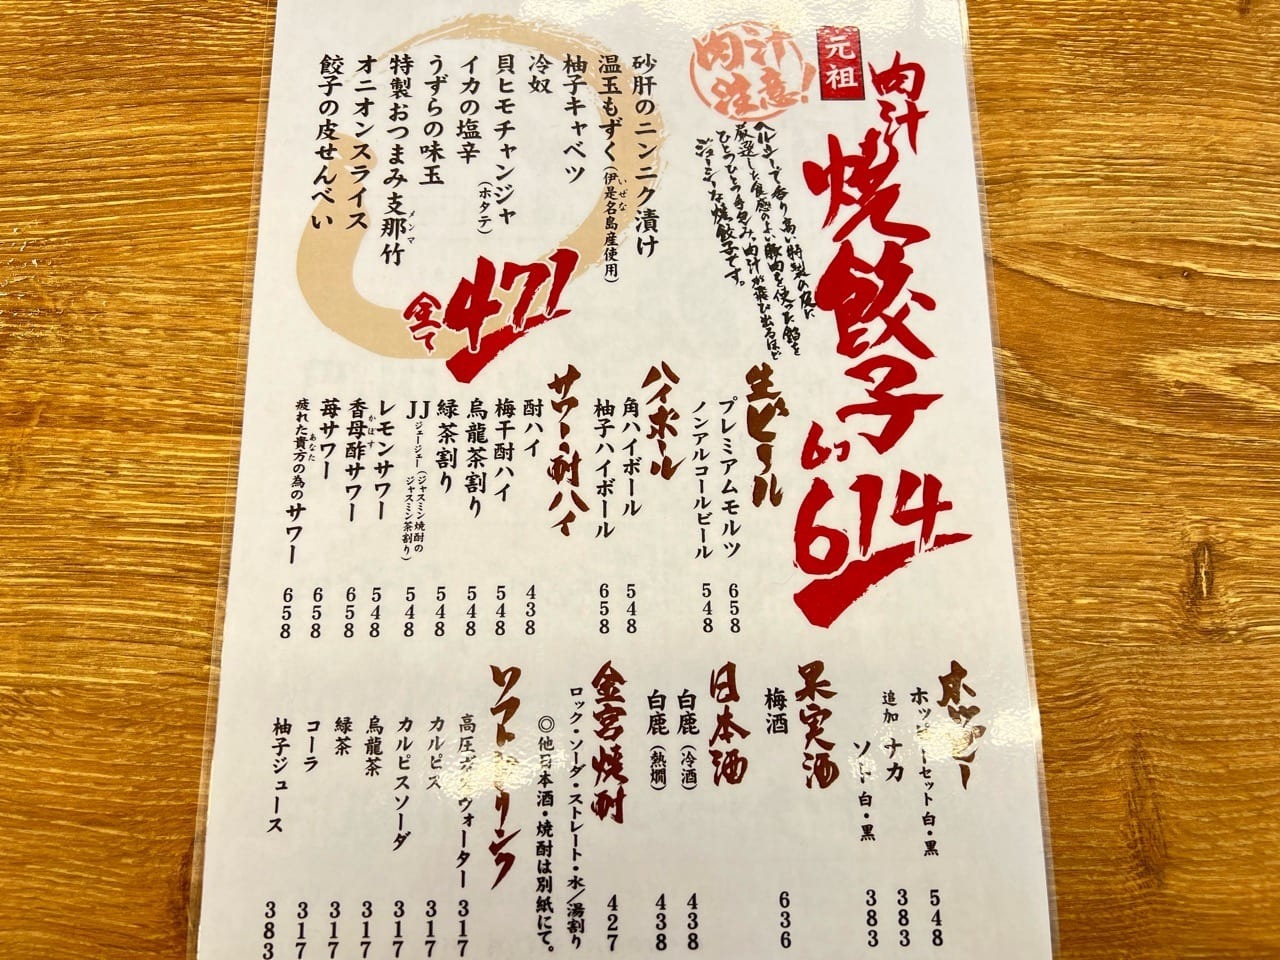 元祖
肉汁
焼餃子
6コ
614
肉汁注意!
ヘルシーで香り高い特製の皮に
厳選した食感のよい豚肉を使った餡を
ひとつひとつ手包み。肉汁が飛び出るほど
ジューシーな焼餃子です。
砂肝のニンニク漬け
温玉もずく(伊是名島産使用)
いぜな
柚子キャベツ
冷奴
貝ヒモチャンジャ
(ホタテ)
イカの塩辛
うずらの味玉
特製おつまみ支那竹
メンマ
オニオンスライス
餃子の皮せんべい
全て471
生ビール
プレミアムモルツ 658
ノンアルコールビール 548
ハイボール
角ハイボール 548
柚子ハイボール 658
サワー・酎ハイ
酎ハイ 438
梅干酎ハイ 548
烏龍茶割り 548
緑茶割り 548
JJ(ジャスミン焼酎のジャスミン茶割り) 548
ジェージェー
レモンサワー 548
香母酢サワー 658
かぼす
苺サワー 658
疲れた貴方の為のサワー 658
あなた
ホッピー
ホッピーセット白・黒 548
追加 ナカ 383
ソト 白・黒 383
果実酒
梅酒 636
日本酒
白鹿(冷酒) 438
白鹿(熱燗) 438
金宮焼酎 427
ロック・ソーダ・ストレート・水/湯割り
◎他日本酒・焼酎は別紙にて。
ソフトドリンク
高圧ガスウォーター 317
カルピス 317
カルピスソーダ 317
烏龍茶 317
緑茶 317
コーラ 317
柚子ジュース 383